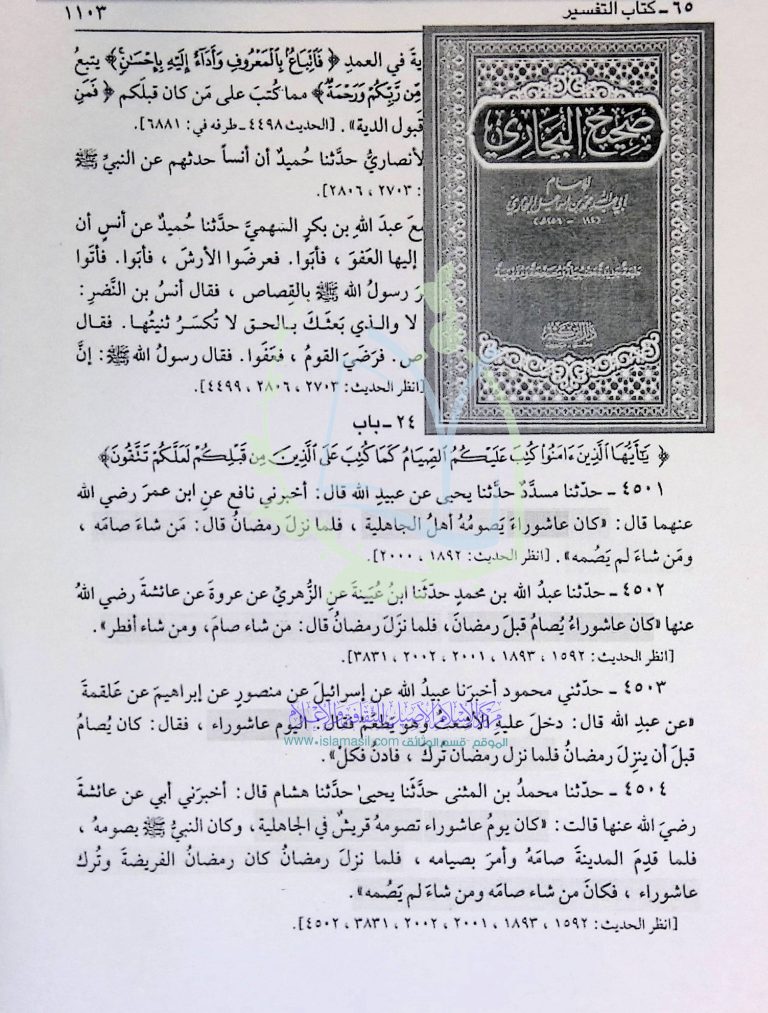 ٦٥ ـ كتاب التفسير
١١٠٣
صحيح البخاري
للإمام
دار ابن كثير
ية في العمدِ ﴿ فَٱتِّبَاعٌ بِٱلْمَعْرُوفِ وَأَدَآءٌ إِلَيْهِ بِإِحْسَٰنٍ﴾ يتبعُ
مِن رَّبِّكُمْ وَرَحْمَةٌ﴾ مما كُتبَ على مَن كان قبلَكم ﴿ فَمَنِ
قَبول الدية». [الحديث ٤٤٩٨ ـ طرفه في: ٦٨٨١].
لأنصاريُّ حدَّثنا حُميدٌ أن أنساً حدثهم عن النبيِّ ﷺ
: ٢٧٠٣ ، ٢٨٠٦].
عَ عبدَ اللهِ بن بكرٍ السهميَّ حدَّثنا حُميدٌ عن أنسٍ أن
إليها العَفوَ ، فأبَوا. فعرضَوا الأرشَ ، فأبَوا. فأتَوا
رَ رسولُ الله ﷺ بالقِصاص ، فقال أنسُ بن النَّضرِ:
لا والذي بَعثَكَ بالحق لا تُكسَرُ ثنيتُها. فقال
ص. فرَضَيَ القومُ ، فعَفَوا. فقال رسولُ الله ﷺ: إنَّ
[انظر الحديث: ٢٧٠٣ ، ٢٨٠٦ ، ٤٤٩٩].
٢٤ ـ باب
﴿ يَٰٓأَيُّهَا ٱلَّذِينَ ءَامَنُوا۟ كُتِبَ عَلَيْكُمُ ٱلصِّيَامُ كَمَا كُتِبَ عَلَى ٱلَّذِينَ مِن قَبْلِكُمْ لَعَلَّكُمْ تَتَّقُونَ﴾
٤٥٠١ ـ حدّثنا مسدَّدٌ حدَّثنا يحيى عن عبيدِ الله قال: أخبرني نافع عنِ ابن عمرَ رضي الله
عنهما قال: «كان عاشوراءَ يَصومُهُ أهلُ الجاهلية ، فلما نزلَ رمضانُ قال: مَن شاءَ صامَه ،
ومَن شاءَ لم يَصُمه». [انظر الحديث: ١٨٩٢ ، ٢٠٠٠].
٤٥٠٢ ـ حدّثنا عبدُ الله بن محمدٍ حدّثَنا ابنُ عُيَينةَ عنِ الزُّهريِّ عن عروةَ عن عائشةَ رضي اللهُ
عنها «كان عاشوراءُ يُصامُ قبلَ رمضانَ، فلما نزَلَ رمضانُ قال: مَن شاء صامَ، ومن شاء أفطر».
[انظر الحديث: ١٥٩٢ ، ١٨٩٣ ، ٢٠٠١ ، ٢٠٠٢ ، ٣٨٣١].
٤٥٠٣ ـ حدّثني محمود أخبرَنا عبيدُ الله عن إسرائيلَ عن منصورٍ عن إبراهيمَ عن عَلقمةَ
«عن عبدِ الله قال: دخلَ عليهِ الأشعثُ وهو يَطعَمُ فقال: اليوم عاشوراء ، فقال: كان يُصامُ
مركز الإسلام الأصيل للثقافة والإعلام
الموقع - قسم الوثائق www.islamasil.com
قبلَ أن ينزلَ رمضانُ فلما نزل رمضان تُركَ ، فادنُ فكلْ».
٤٥٠٤ ـ حدّثنا محمدُ بن المثنى حدَّثَنا يحيىٰ حدَّثنا هشام قال: أخبرَني أبي عن عائشةَ
رضيَ الله عنها قالت: «كان يومُ عاشوراء تصومهُ قريشٌ في الجاهلية، وكان النبيُّ ﷺ يصومهُ ،
فلما قدِمَ المدينةَ صامَهُ وأمرَ بصيامه ، فلما نزلَ رمضانُ كان رمضانُ الفريضةَ وتُرك
عاشوراء ، فكانَ من شاء صامَه ومن شاءَ لم يَصُمه».
[انظر الحديث: ١٥٩٢ ، ١٨٩٣ ، ٢٠٠١ ، ٢٠٠٢ ، ٣٨٣١ ، ٤٥٠٢].